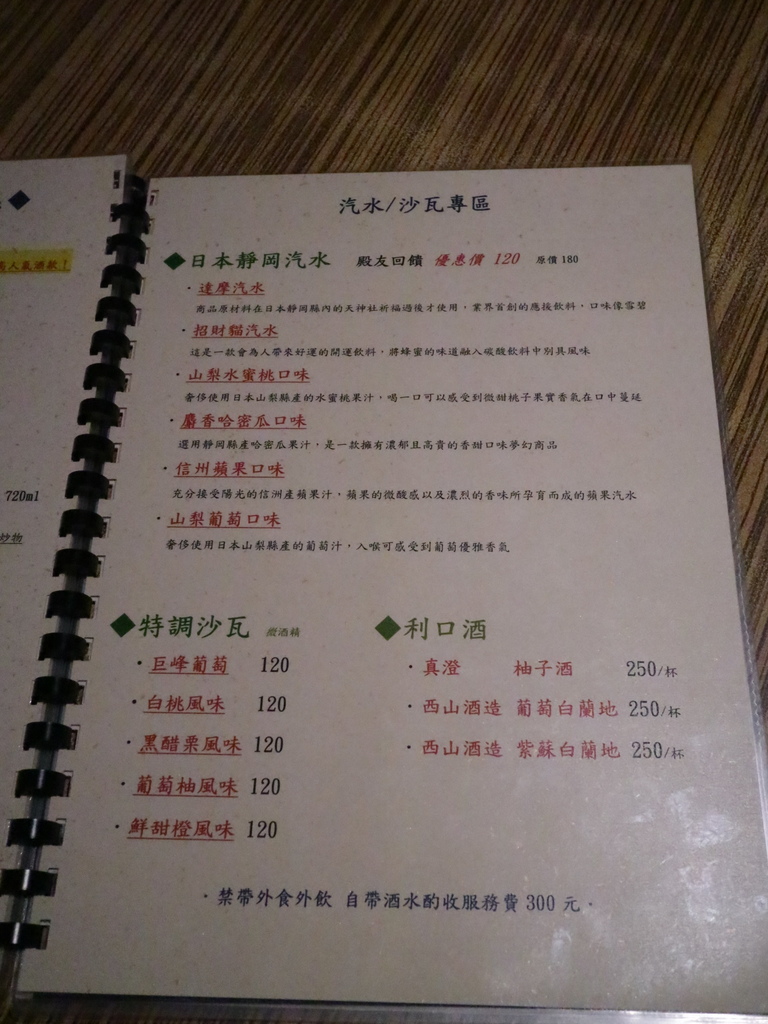 人氣酒款！
720ml
炒物
汽水/沙瓦專區
◆日本靜岡汽水 殿友回饋 優惠價 120 原價 180
·達摩汽水
商品原材料在日本靜岡縣內的天神社祈福過後才使用，業界首創的應援飲料，口味像雪碧
·招財貓汽水
這是一款會為人帶來好運的開運飲料，將蜂蜜的味道融入碳酸飲料中別具風味
·山梨水蜜桃口味
奢侈使用日本山梨縣產的水蜜桃果汁，喝一口可以感受到微甜桃子果實香氣在口中蔓延
·麝香哈密瓜口味
選用靜岡縣產哈密瓜果汁，是一款擁有濃郁且高貴的香甜口味夢幻商品
·信州蘋果口味
充分接受陽光的信洲產蘋果汁，蘋果的微酸感以及濃烈的香味所孕育而成的蘋果汽水
·山梨葡萄口味
奢侈使用日本山梨縣產的葡萄汁，入喉可感受到葡萄優雅香氣
◆特調沙瓦 微酒精
·巨峰葡萄 120
·白桃風味 120
·黑醋栗風味 120
·葡萄柚風味 120
·鮮甜橙風味 120
◆利口酒
·真澄 柚子酒 250/杯
·西山酒造 葡萄白蘭地 250/杯
·西山酒造 紫蘇白蘭地 250/杯
·禁帶外食外飲 自帶酒水酌收服務費 300 元·